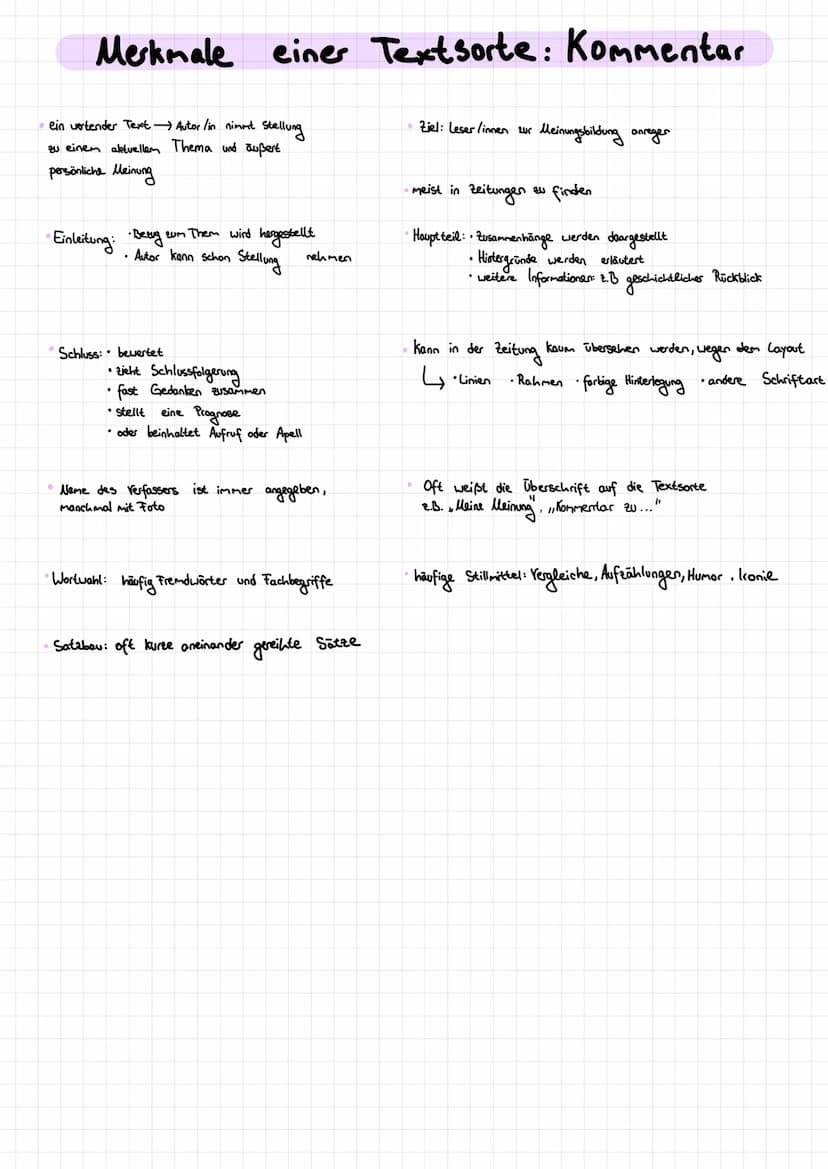 Merkmale einer Textsorte: Kommentar
• ein wertender Text → Autor/in nimmt Stellung
zu einem aktuellem Thema und äußert
persönliche Meinung
• Ziel: Leser/innen zur Meinungsbildung anregen
• meist in Zeitungen zu finden
• Einleitung: • Bezug zum Them wird hergestellt
• Autor kann schon Stellung nehmen
• Hauptteil: • Zusammenhänge werden daargestellt
• Hintergründe werden erläutert
• weitere Informationen: z.B geschichtlicher Rückblick
• Schluss: • bewertet
• zieht Schlussfolgerung
• fast Gedanken zusammen
• stellt eine Prognose
• oder beinhaltet Aufruf oder Apell
• kann in der Zeitung kaum übersehen werden, wegen dem Layout
↳ • Linien • Rahmen • farbige Hinterlegung • andere Schriftart
• Name des Verfassers ist immer angegeben,
manchmal mit Foto
• Oft weißt die Überschrift auf die Textsorte
z.B. „Meine Meinung", „Kommentar zu..."
• Wortwahl: häufig Fremdwörter und Fachbegriffe
• häufige Stillmittel: Vergleiche, Aufzählungen, Humor, Ironie
• Satzbau: oft kurze aneinander gereihte Sätze